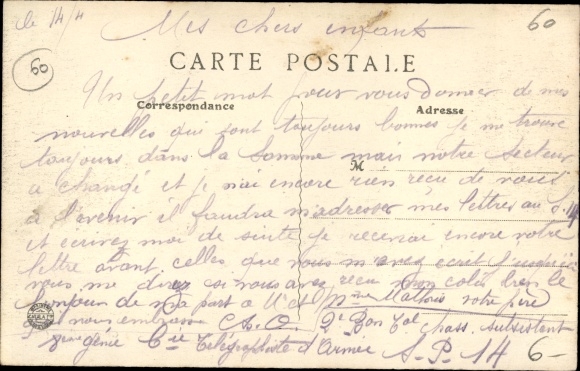 le 14/4
Mes chers enfants
60
60
CARTE POSTALE
Un petit mot pour vous donner de mes
Correspondance
Adresse
nouvelles qui sont toujours bonnes je me trouve
toujours dans la Somme mais notre secteur
M
a changé et je n'ai encore rien reçu de vous
à l'avenir il faudra m'adresser mes lettres au S. 14
et ecrivez moi de suite je recevrai encore votre
lettre avant celles que vous m'avez ecrit
vous me direz si vous avez reçu mon colis bien le
bonjour de ma part à Mr et Mme votre père
qui vous embrasse C.A.O. 2e Bon Col chass. subsistant
8eme génie Cie Télégraphiste d'Armée S.P. 14
6-